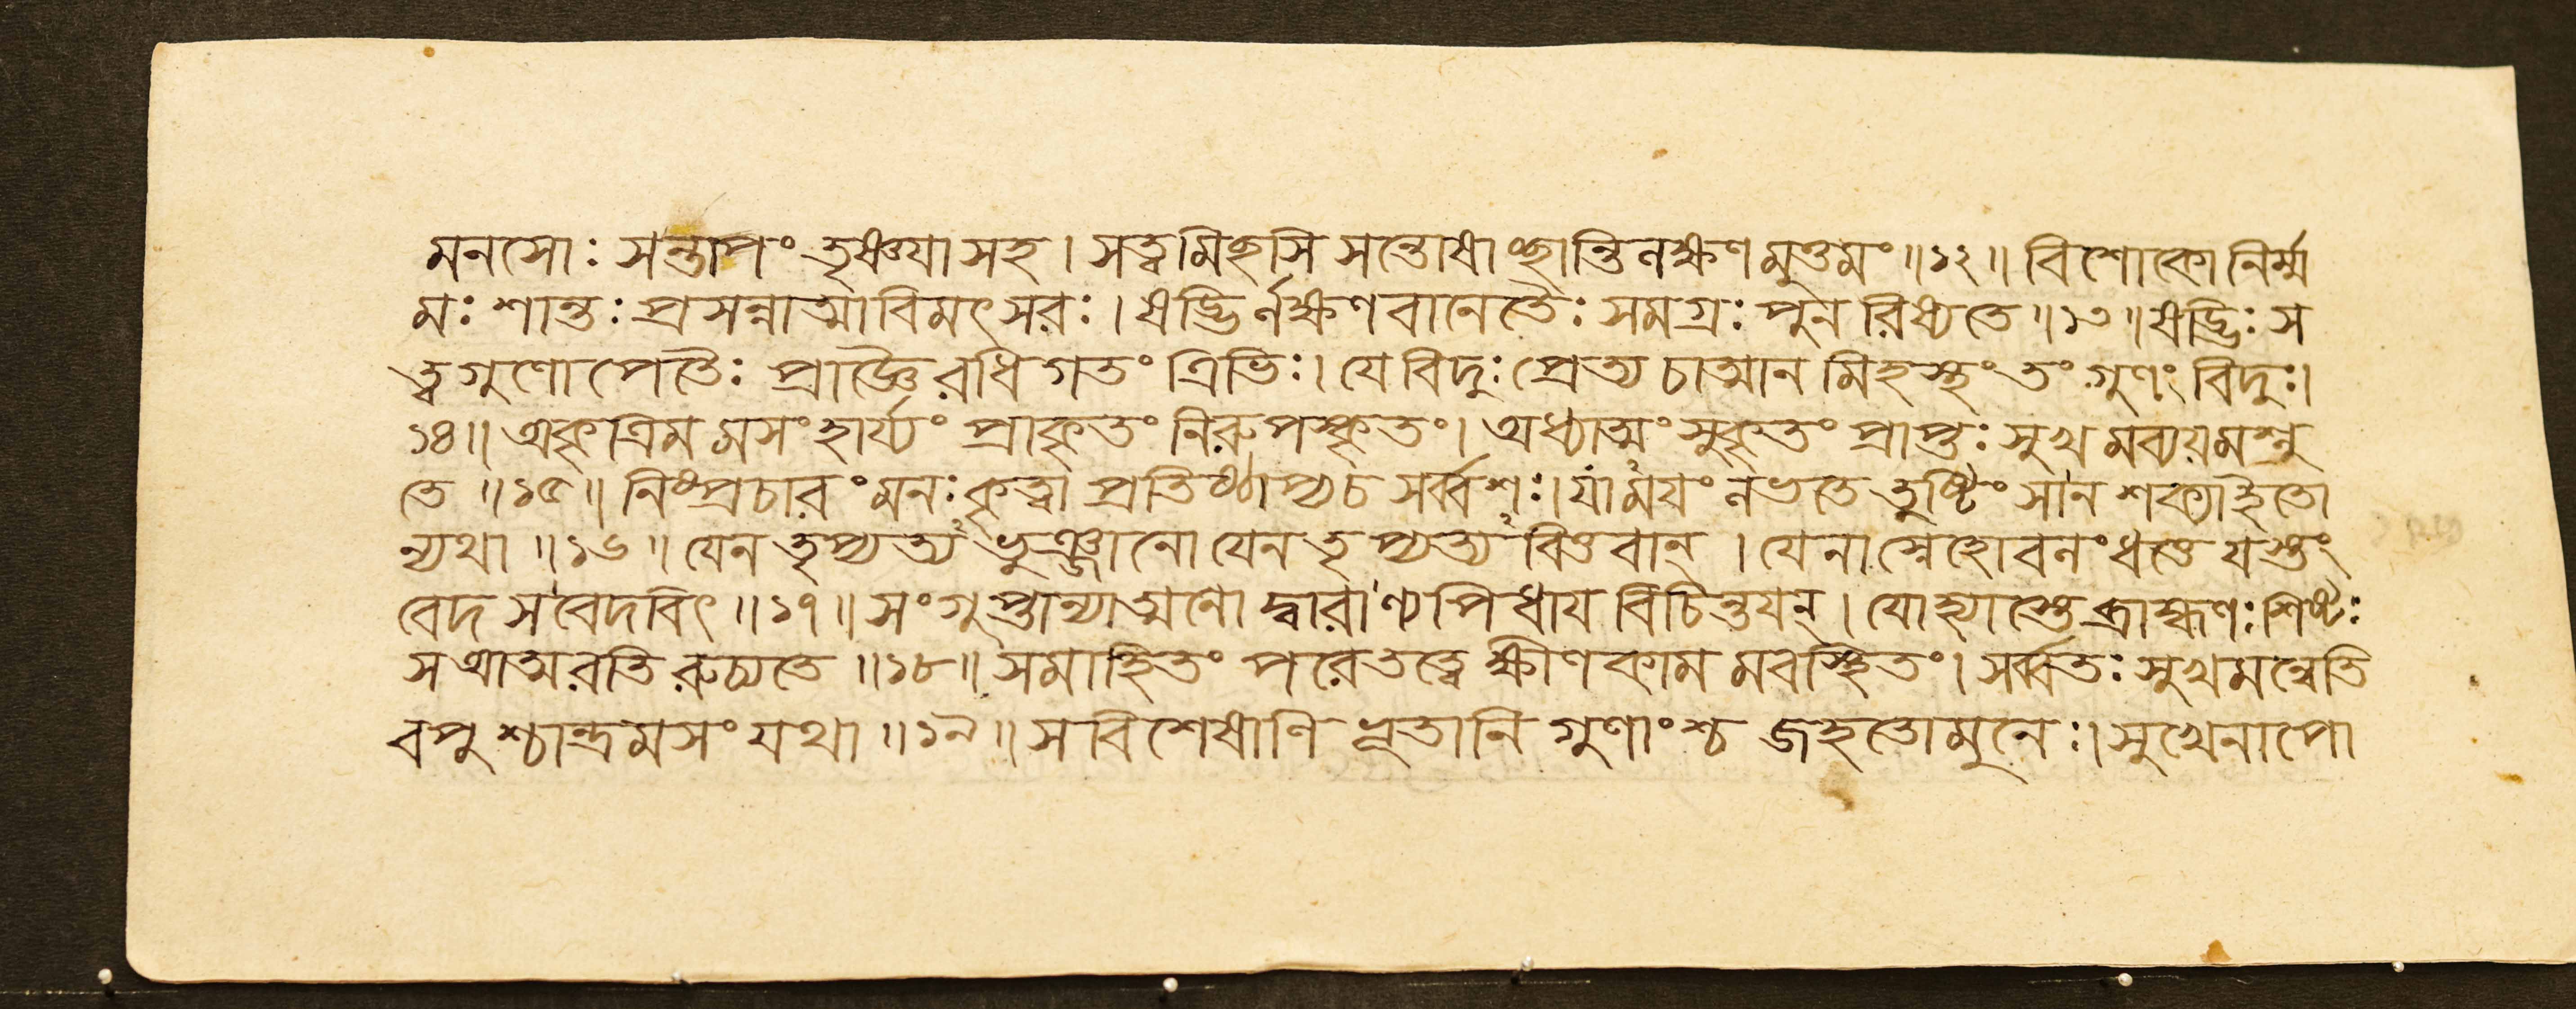 মনসোঃ সন্তাপং তৃষ্ণয়া সহ। সত্ত্বমিচ্ছসি সন্তোষাচ্ছান্তিলক্ষণমুত্তমং॥১২॥ বিশোকো নির্ম্ম
মঃ শান্তঃ প্রসন্নাত্মা বিমৎসরঃ। ষড্ভির্লক্ষণবানেতৈঃ সমগ্রঃ পুনরিষ্যতে॥১৩॥ ষড্ভিঃ স
ত্ত্বগুণোপেতৈঃ প্রাজ্ঞৈরধিগতং ত্রিভিঃ। যে বিদুঃ প্রেত্য চাত্মানমিহস্থং তং গুণং বিদুঃ।
১৪॥ অকৃত্রিমমসংহার্য্যং প্রাকৃতং নিরুপস্কৃতং। অধ্যাত্মং সুকৃতং প্রাপ্তঃ সুখমব্যয়মশ্নু
তে॥১৫॥ নিষ্প্রচারং মনঃ কৃত্বা প্রতিষ্ঠাপ্য চ সর্ব্বশঃ। যাময়ং লভতে তুষ্টিং সা ন শক্যাহতো
ন্যথা॥১৬॥ যেন তৃপ্যত্যভুঞ্জানো যেন তৃপ্যত্যবিত্তবান্। যেনাস্নেহো বলং ধত্তে যস্তং
বেদ স বেদবিৎ॥১৭॥ সংগুপ্তান্যাত্মনো দ্বারাণ্যপিধায় বিচিন্তয়ন্। যো হ্যাস্তে ব্রাহ্মণঃ শিষ্টঃ
স আত্মরতিরুচ্যতে॥১৮॥ সমাহিতং পরে তত্ত্বে ক্ষীণকামমবস্থিতং। সর্ব্বতঃ সুখমন্বেতি
বপুশ্চান্দ্রমসং যথা॥১৯॥ সবিশেষাণি ভূতানি গুণাংশ্চ জহতো মুনেঃ। সুখেনাপো